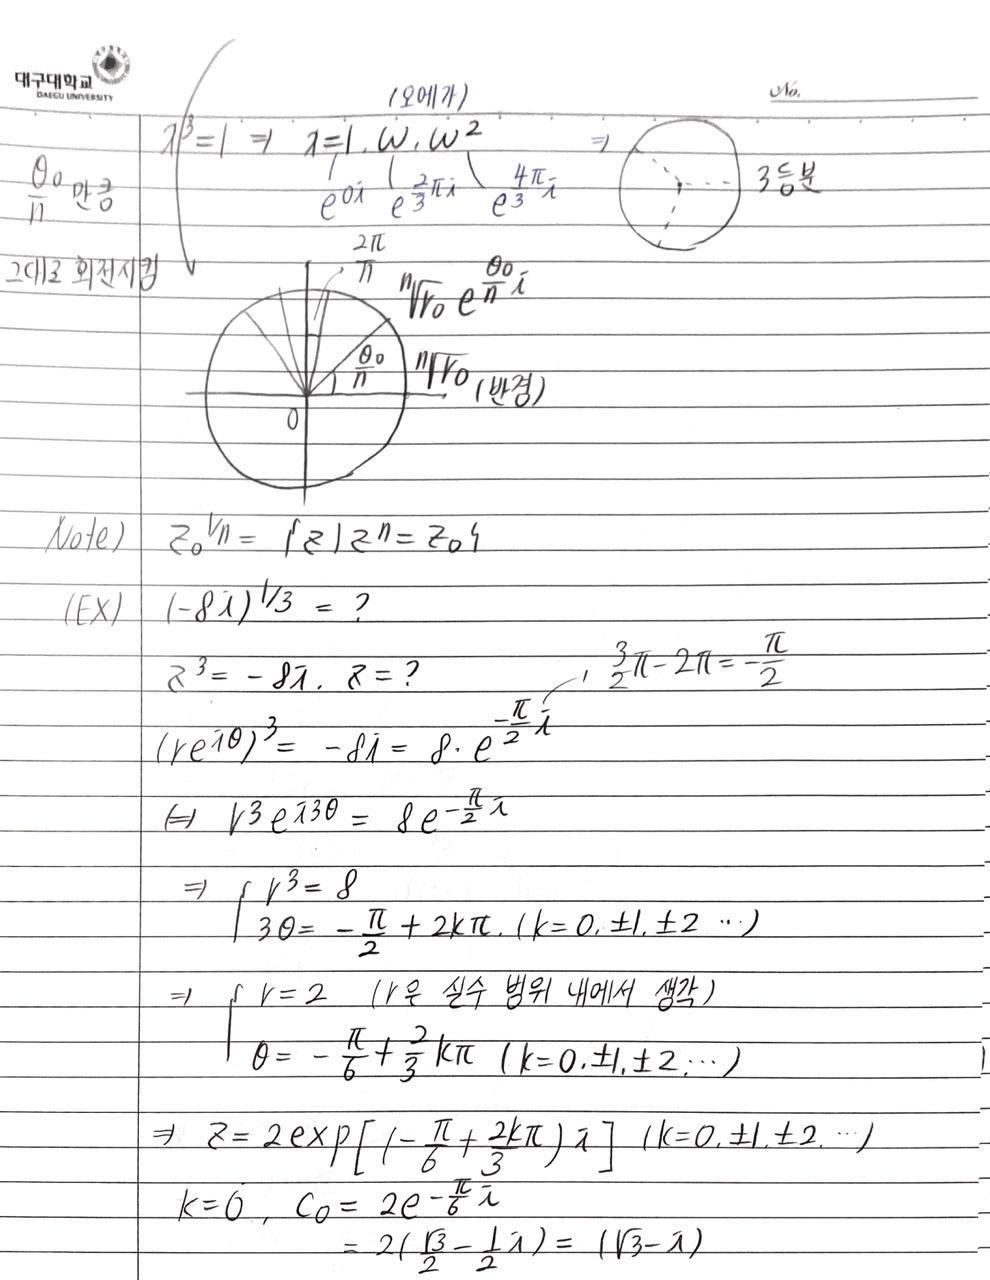 대구대학교
DAEGU UNIVERSITY
No.
(오메가)
x³=1 ⇒ x=1, ω, ω² ⇒
e^{0i} e^{\frac{2}{3}πi} e^{\frac{4π}{3}i}
3등분
\frac{θ₀}{n} 만큼
그대로 회전시킴
\frac{2π}{n}
ⁿ√r₀ e^{\frac{θ₀}{n}i}
\frac{θ₀}{n}
ⁿ√r₀ (반경)
0
Note) z₀^{1/n} = {z | zⁿ = z₀}
(EX) (-8i)^{1/3} = ?
z³ = -8i. z = ?
\frac{3}{2}π - 2π = -\frac{π}{2}
(re^{iθ})³ = -8i = 8·e^{-\frac{π}{2}i}
⇔ r³e^{i3θ} = 8e^{-\frac{π}{2}i}
⇒ { r³ = 8
3θ = -\frac{π}{2} + 2kπ. (k=0, ±1, ±2 ···)
⇒ { r = 2 (r은 실수 범위 내에서 생각)
θ = -\frac{π}{6} + \frac{2}{3}kπ (k=0, ±1, ±2, ···)
⇒ z = 2exp[(-\frac{π}{6} + \frac{2kπ}{3})i] (k=0, ±1, ±2, ···)
k=0, C₀ = 2e^{-\frac{π}{6}i}
= 2(\frac{√3}{2} - \frac{1}{2}i) = (√3-i)